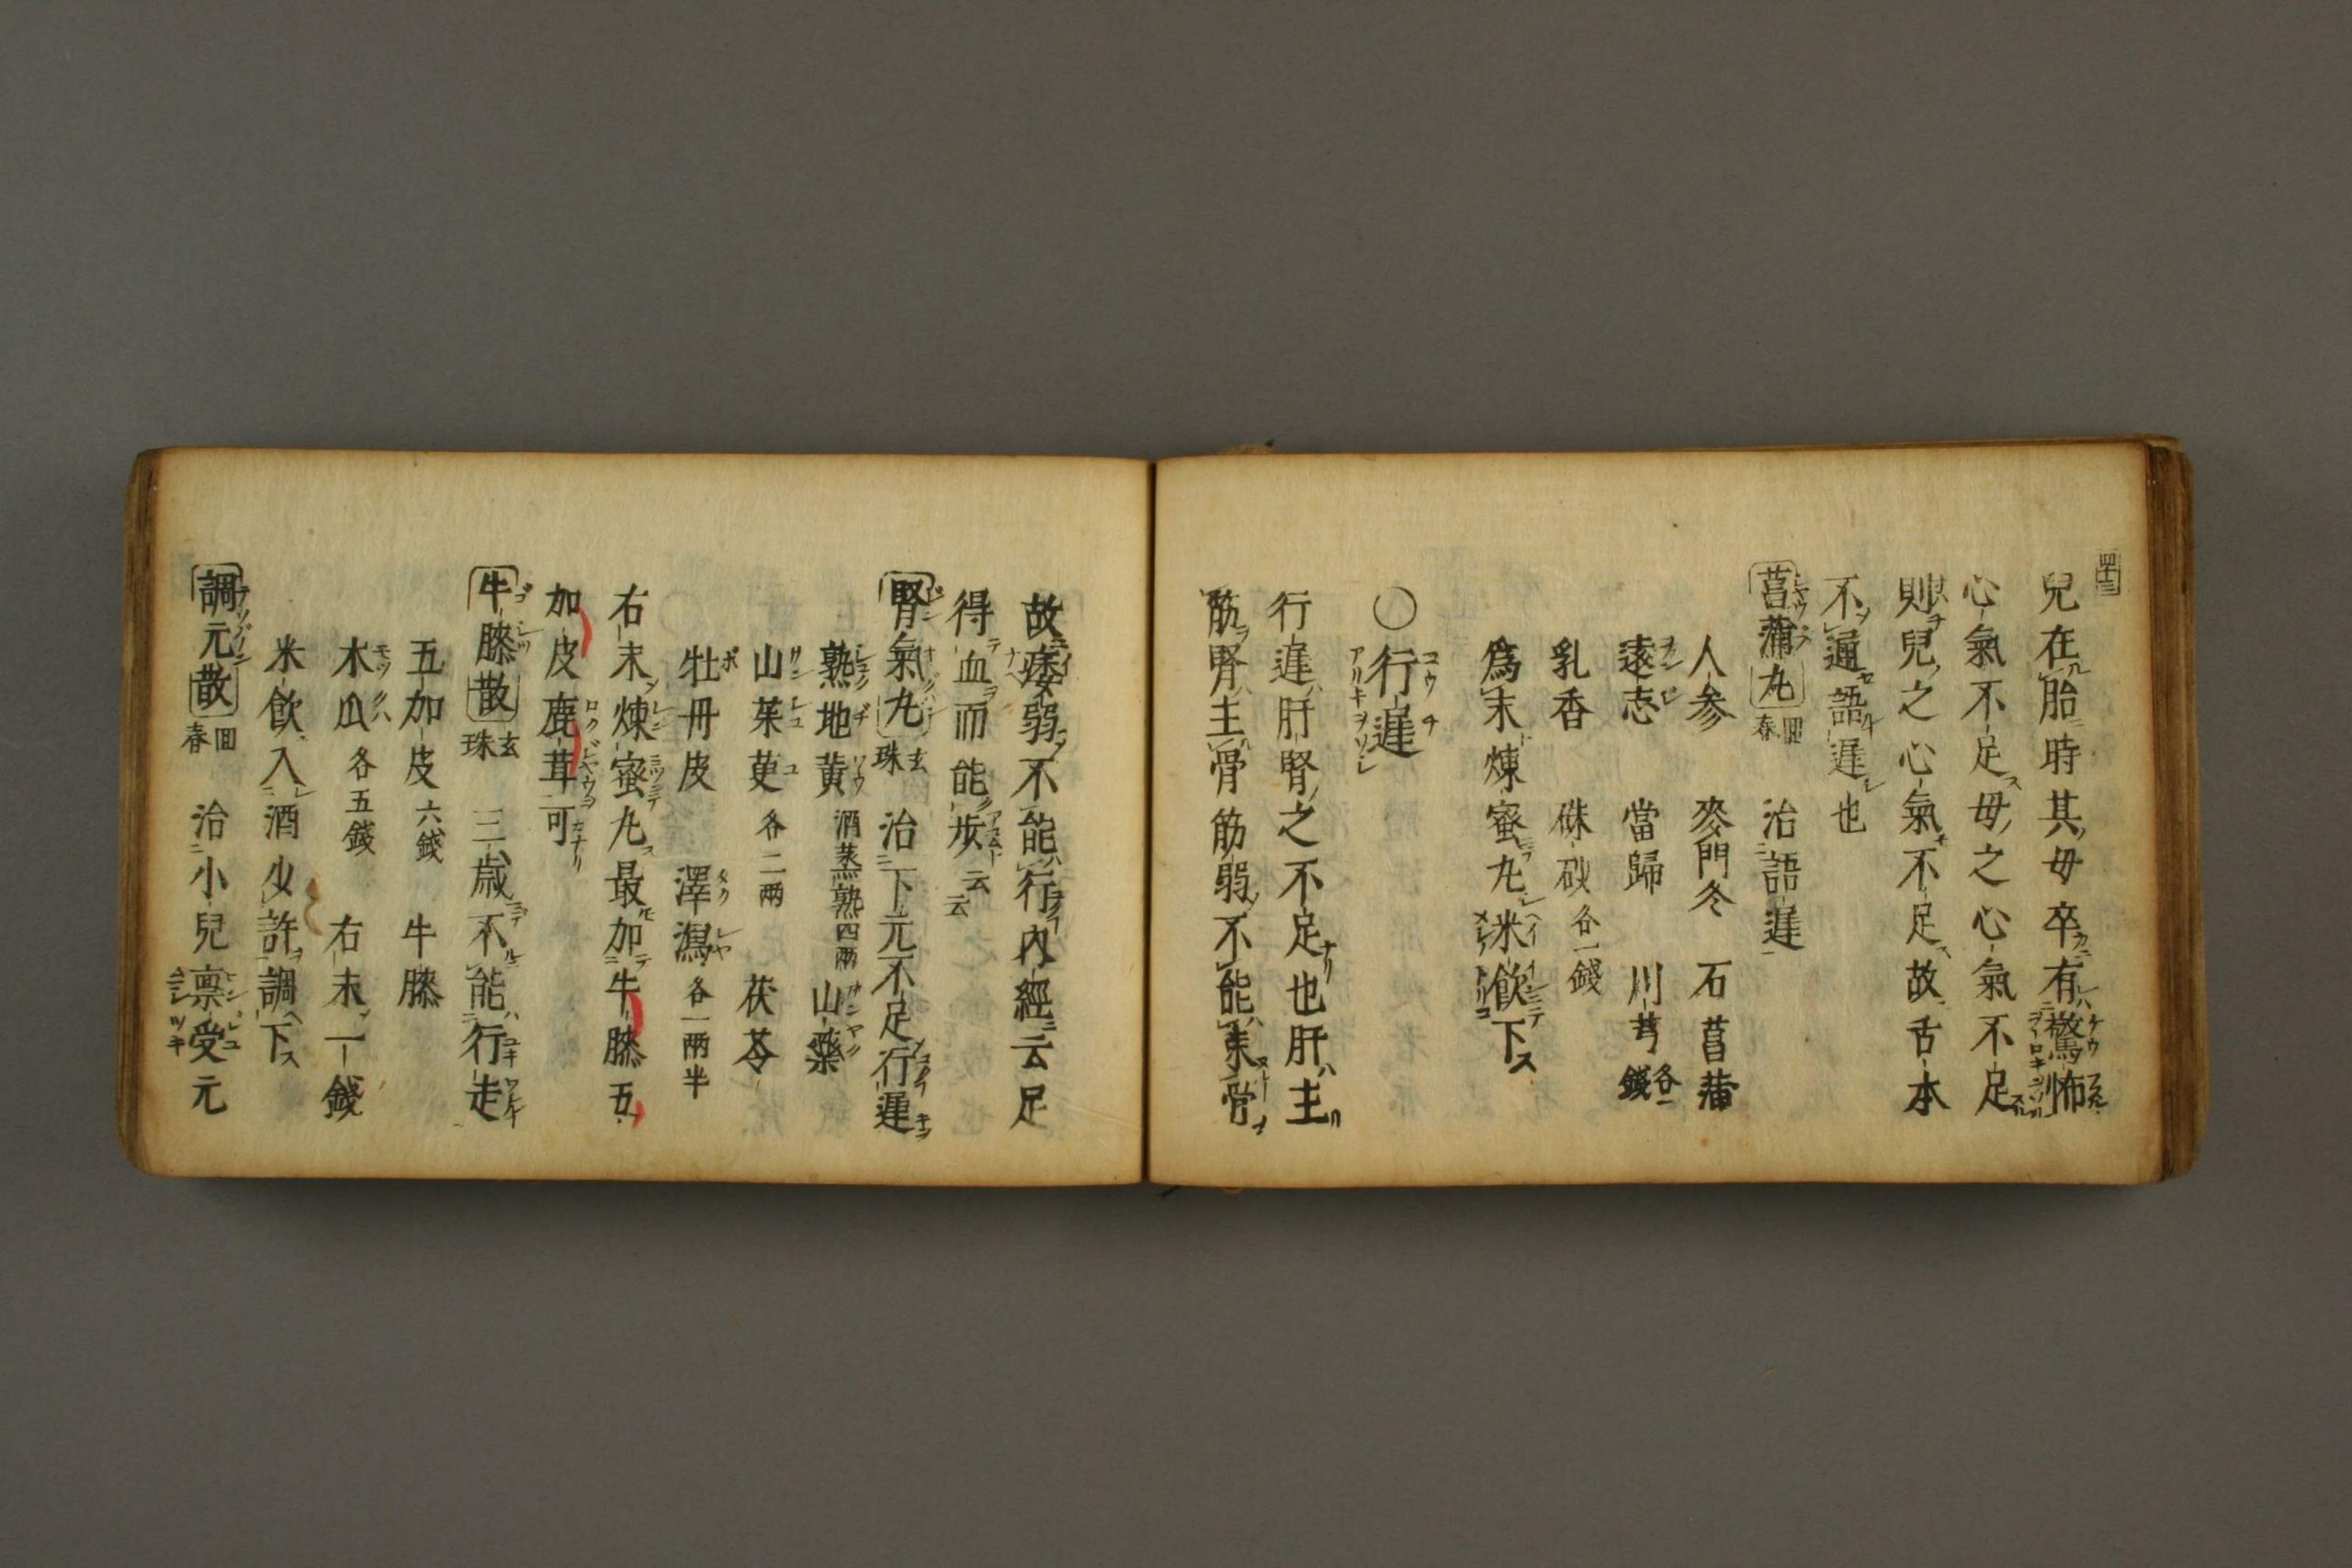 四十三
兒在胎時其母卒有驚怖
心氣不足母之心氣不足
則兒之心氣不足故舌本
不通語遅也
菖蒲丸 回春 治語遅
人参 麥門冬 石菖蒲
遠志 當歸 川芎 各一錢
乳香 硃砂 各一錢
爲末煉蜜丸米飮下ス
○行遅
行遅ハ肝腎ノ之不足ナリ也肝ハ主リ
筋ヲ腎ハ主ル骨筋弱不能束骨
故痿弱不能行内經云足
得血而能歩云云
腎氣丸 玄珠 治下元不足行遅
熟地黄 酒蒸熟四兩 山藥
山茱萸 各二兩 茯苓
牡丹皮 澤瀉 各一兩半
右末煉蜜丸最加牛膝五
加皮鹿茸可
牛膝散 玄珠 三歳不能行走
五加皮 六錢 牛膝
木瓜 各五錢 右末一錢
米飮入酒少許調下ス
調元散 回春 治小兒禀受元